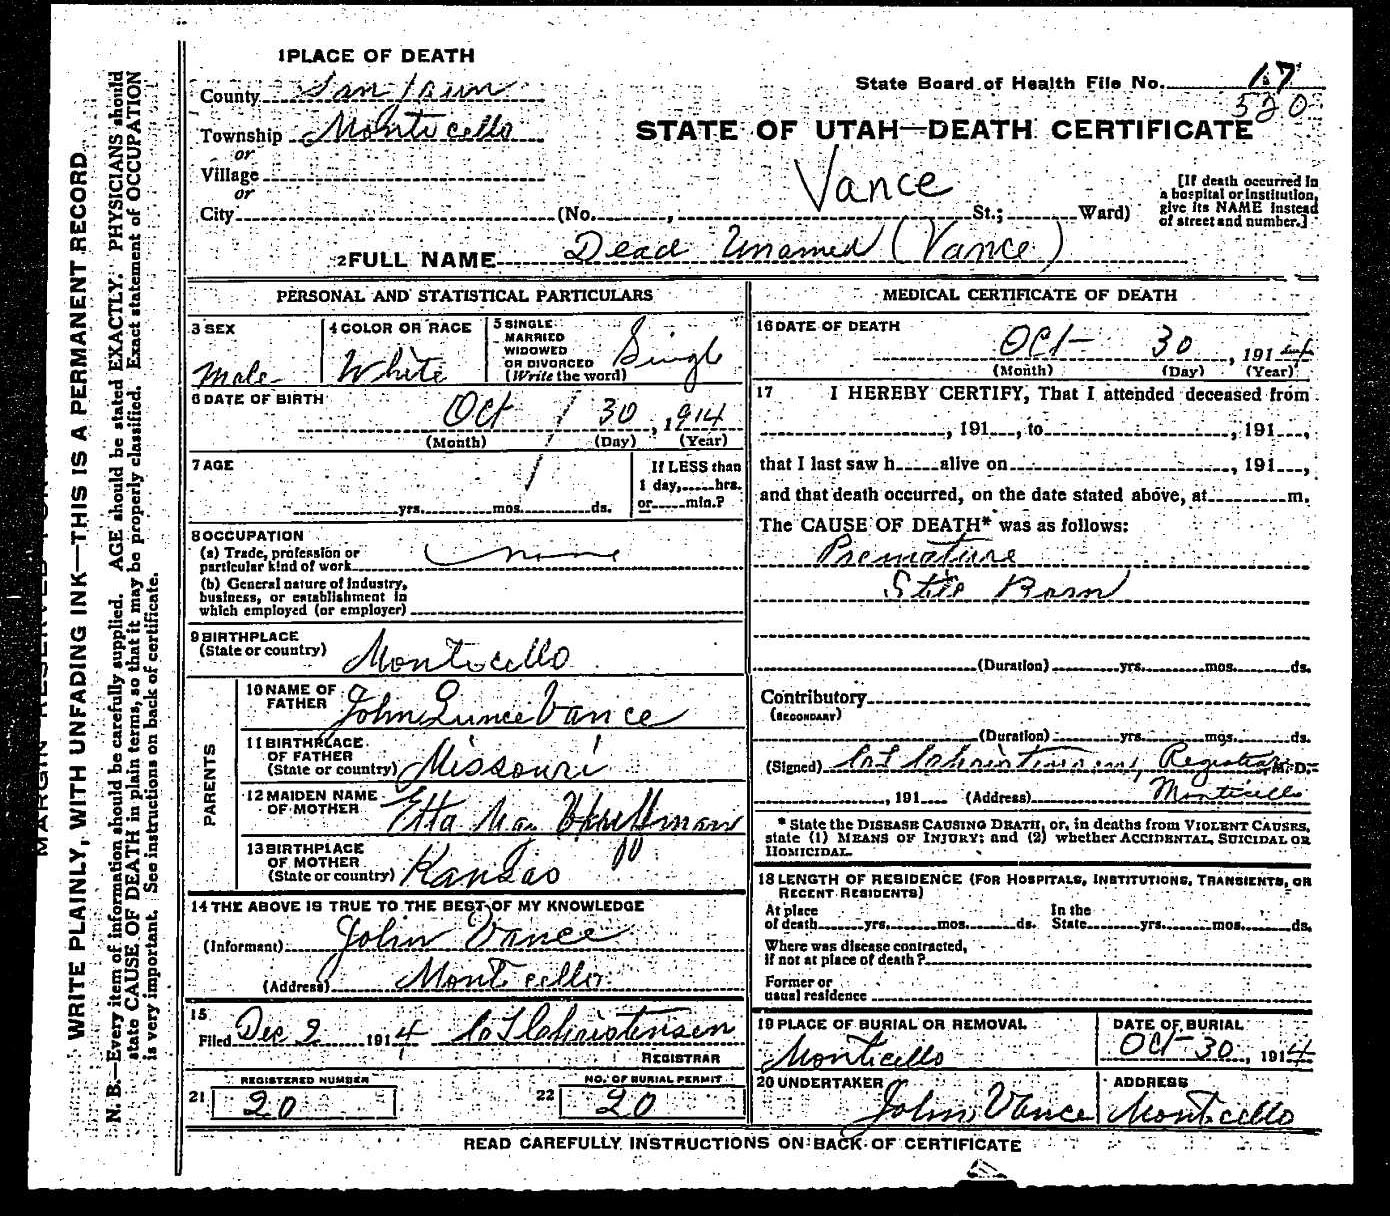 1 PLACE OF DEATH
County San Juan
State Board of Health File No. 17
520
Township Monticello
STATE OF UTAH—DEATH CERTIFICATE
or
Village
or
Vance
[If death occurred in a hospital or institution, give its NAME instead of street and number.]
City (No. , St.; Ward)
2 FULL NAME Dead Unamed (Vance)
PERSONAL AND STATISTICAL PARTICULARS
3 SEX
Male
4 COLOR OR RACE
White
5 SINGLE
MARRIED
WIDOWED
OR DIVORCED
(Write the word)
Single
6 DATE OF BIRTH
Oct 30, 1914
(Month) (Day) (Year)
7 AGE
yrs. mos. ds.
If LESS than
1 day, hrs.
or min.?
8 OCCUPATION
(a) Trade, profession or
particular kind of work none
(b) General nature of industry,
business, or establishment in
which employed (or employer)
9 BIRTHPLACE
(State or country) Monticello
PARENTS
10 NAME OF
FATHER John Vance
11 BIRTHPLACE
OF FATHER
(State or country) Missouri
12 MAIDEN NAME
OF MOTHER Etta May
13 BIRTHPLACE
OF MOTHER
(State or country) Kansas
14 THE ABOVE IS TRUE TO THE BEST OF MY KNOWLEDGE
(Informant) John Vance
(Address) Monticello
15
Filed Dec 2 1914 Christensen
REGISTRAR
REGISTERED NUMBER
21 20
NO. OF BURIAL PERMIT
22 20
MEDICAL CERTIFICATE OF DEATH
16 DATE OF DEATH
Oct 30, 1914
(Month) (Day) (Year)
17 I HEREBY CERTIFY, That I attended deceased from
, 191 , to , 191 ,
that I last saw h alive on , 191 ,
and that death occurred, on the date stated above, at m.
The CAUSE OF DEATH* was as follows:
Premature
Still Born
(Duration) yrs. mos. ds.
Contributory
(SECONDARY)
(Duration) yrs. mos. ds.
(Signed) Christensen, Registrar M. D.
, 191 (Address) Monticello
* State the DISEASE CAUSING DEATH, or, in deaths from VIOLENT CAUSES,
state (1) MEANS OF INJURY; and (2) whether ACCIDENTAL, SUICIDAL OR
HOMICIDAL.
18 LENGTH OF RESIDENCE (FOR HOSPITALS, INSTITUTIONS, TRANSIENTS, OR
RECENT RESIDENTS)
At place In the
of death yrs. mos. ds. State yrs. mos. ds.
Where was disease contracted,
if not at place of death?
Former or
usual residence
19 PLACE OF BURIAL OR REMOVAL
Monticello
DATE OF BURIAL
Oct 30, 1914
20 UNDERTAKER
John Vance
ADDRESS
Monticello
READ CAREFULLY INSTRUCTIONS ON BACK OF CERTIFICATE
MARGIN RESERVED
WRITE PLAINLY, WITH UNFADING INK—THIS IS A PERMANENT RECORD
N. B.—Every item of information should be carefully supplied. AGE should be stated EXACTLY. PHYSICIANS should
state CAUSE OF DEATH in plain terms, so that it may be properly classified. Exact statement of OCCUPATION
is very important. See instructions on back of certificate.